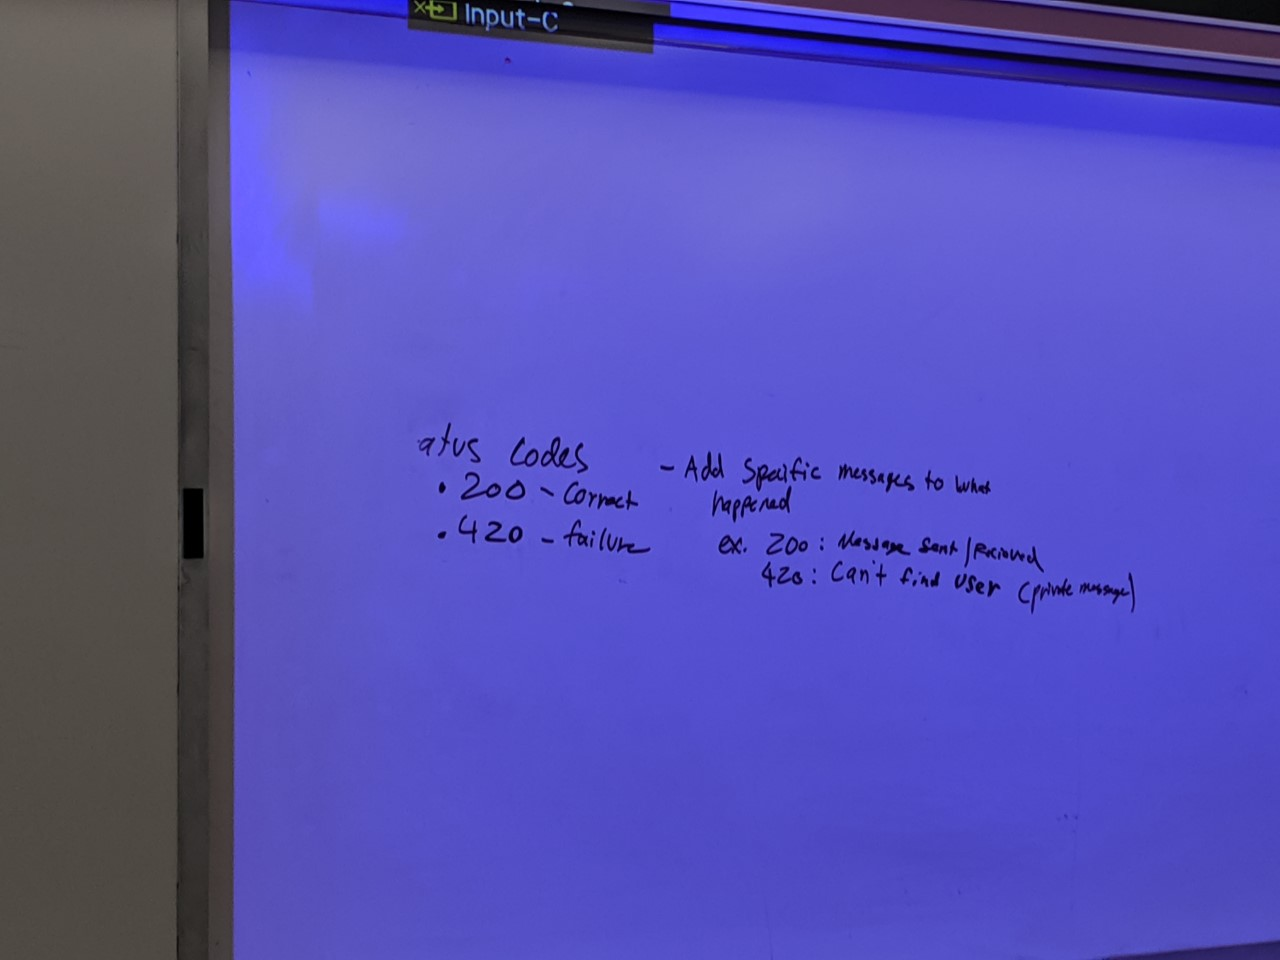 Input-C
atus Codes
• 200 - Correct
• 420 - failure
- Add Specific messages to what
happened
ex. 200: Message Sent/Recieved
420: Can't find User (private message)